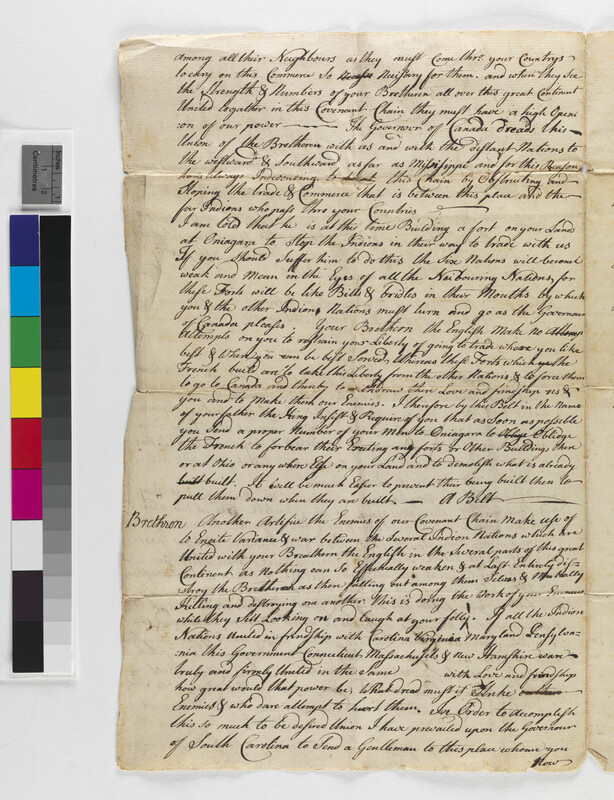 among all their Neighbours as they must Come thro your Countrys
to cary on this Commerce So Nessisary for them. and when they See
the Strength & Numbers of your Bretheren all over this great Continent
United togather in this Covenant Chain they must have a high Openi
on of our power — The Governour of Canada dreads this
Union of the Brethoren with us and with the distant Nations to
the westward & Southward as far as Missisippe and for this Reason
has always Indeavouring to this Chain by Obstructing and
Stoping the trade & Commerce that is between this place and the
far Indians who pass thro your Countries
I am told that he is at this time Building a fort on your Land
at Oniagara to Stop the Indians in their way to trade with us
If you Should Suffer him to do this the Six Nations will become
weak and Mean in the Eyes of all the Neibouring Nations, for
these Forts will be like Bitts & bridles in their Mouths by which
you & the other Indian Nations must turn and go as the Governour
of Canada pleases. Your Brethern the English Make no
attempts on you to restrain your Liberty of going to trade where you like
best & where you can be best Served, Whereas these Forts which the
French build are to take this Liberty from the other Nations & to force them
to go to Canada and thereby to withdraw there Love and frindship us &
you and to Make them our Enemies. I therefore by this Belt in the Name
of your father the King Insist & Require of you that as Soon as possible
you Send a proper Number of your Men to Oniagara to Oblidge
the French to forbear their Erecting any forts or Other Building there
or at Ohio or any where Else on your Land and to demolish what is already
built. It will be much Easier to prevent their being built then to
pull them down when they are built. — A Belt
Brethren Another Artifice the Enemies of our Covenant Chain make use of
to Create Variance & war between the Several Indian Nations which are
United with your Breathern the English in the Several parts of this great
Continent as Nothing can So Effectually weaken & at Last Entirely des-
stroy the Bretheren as there falling out among them Selves &
Killing and destroying one another. This is doing the Work of your Enemies
while they Sitt Looking on and laugh at your folly. If all the Indian
Nations United in friendship with Carolina Virginia Maryland Pensylva-
nia this Government Connecticut Massachusets & new Hamshire ware
truly and firmly United in the Same with Love and friendship
how great would that power be, What dread must it Strike
Enemies & who dare attempt to hurt them. In Order to Accomplish
this so much to be desired Union I have prevailed upon the Governour
of South Carolina to Send a Gentleman to this place whome you
Now